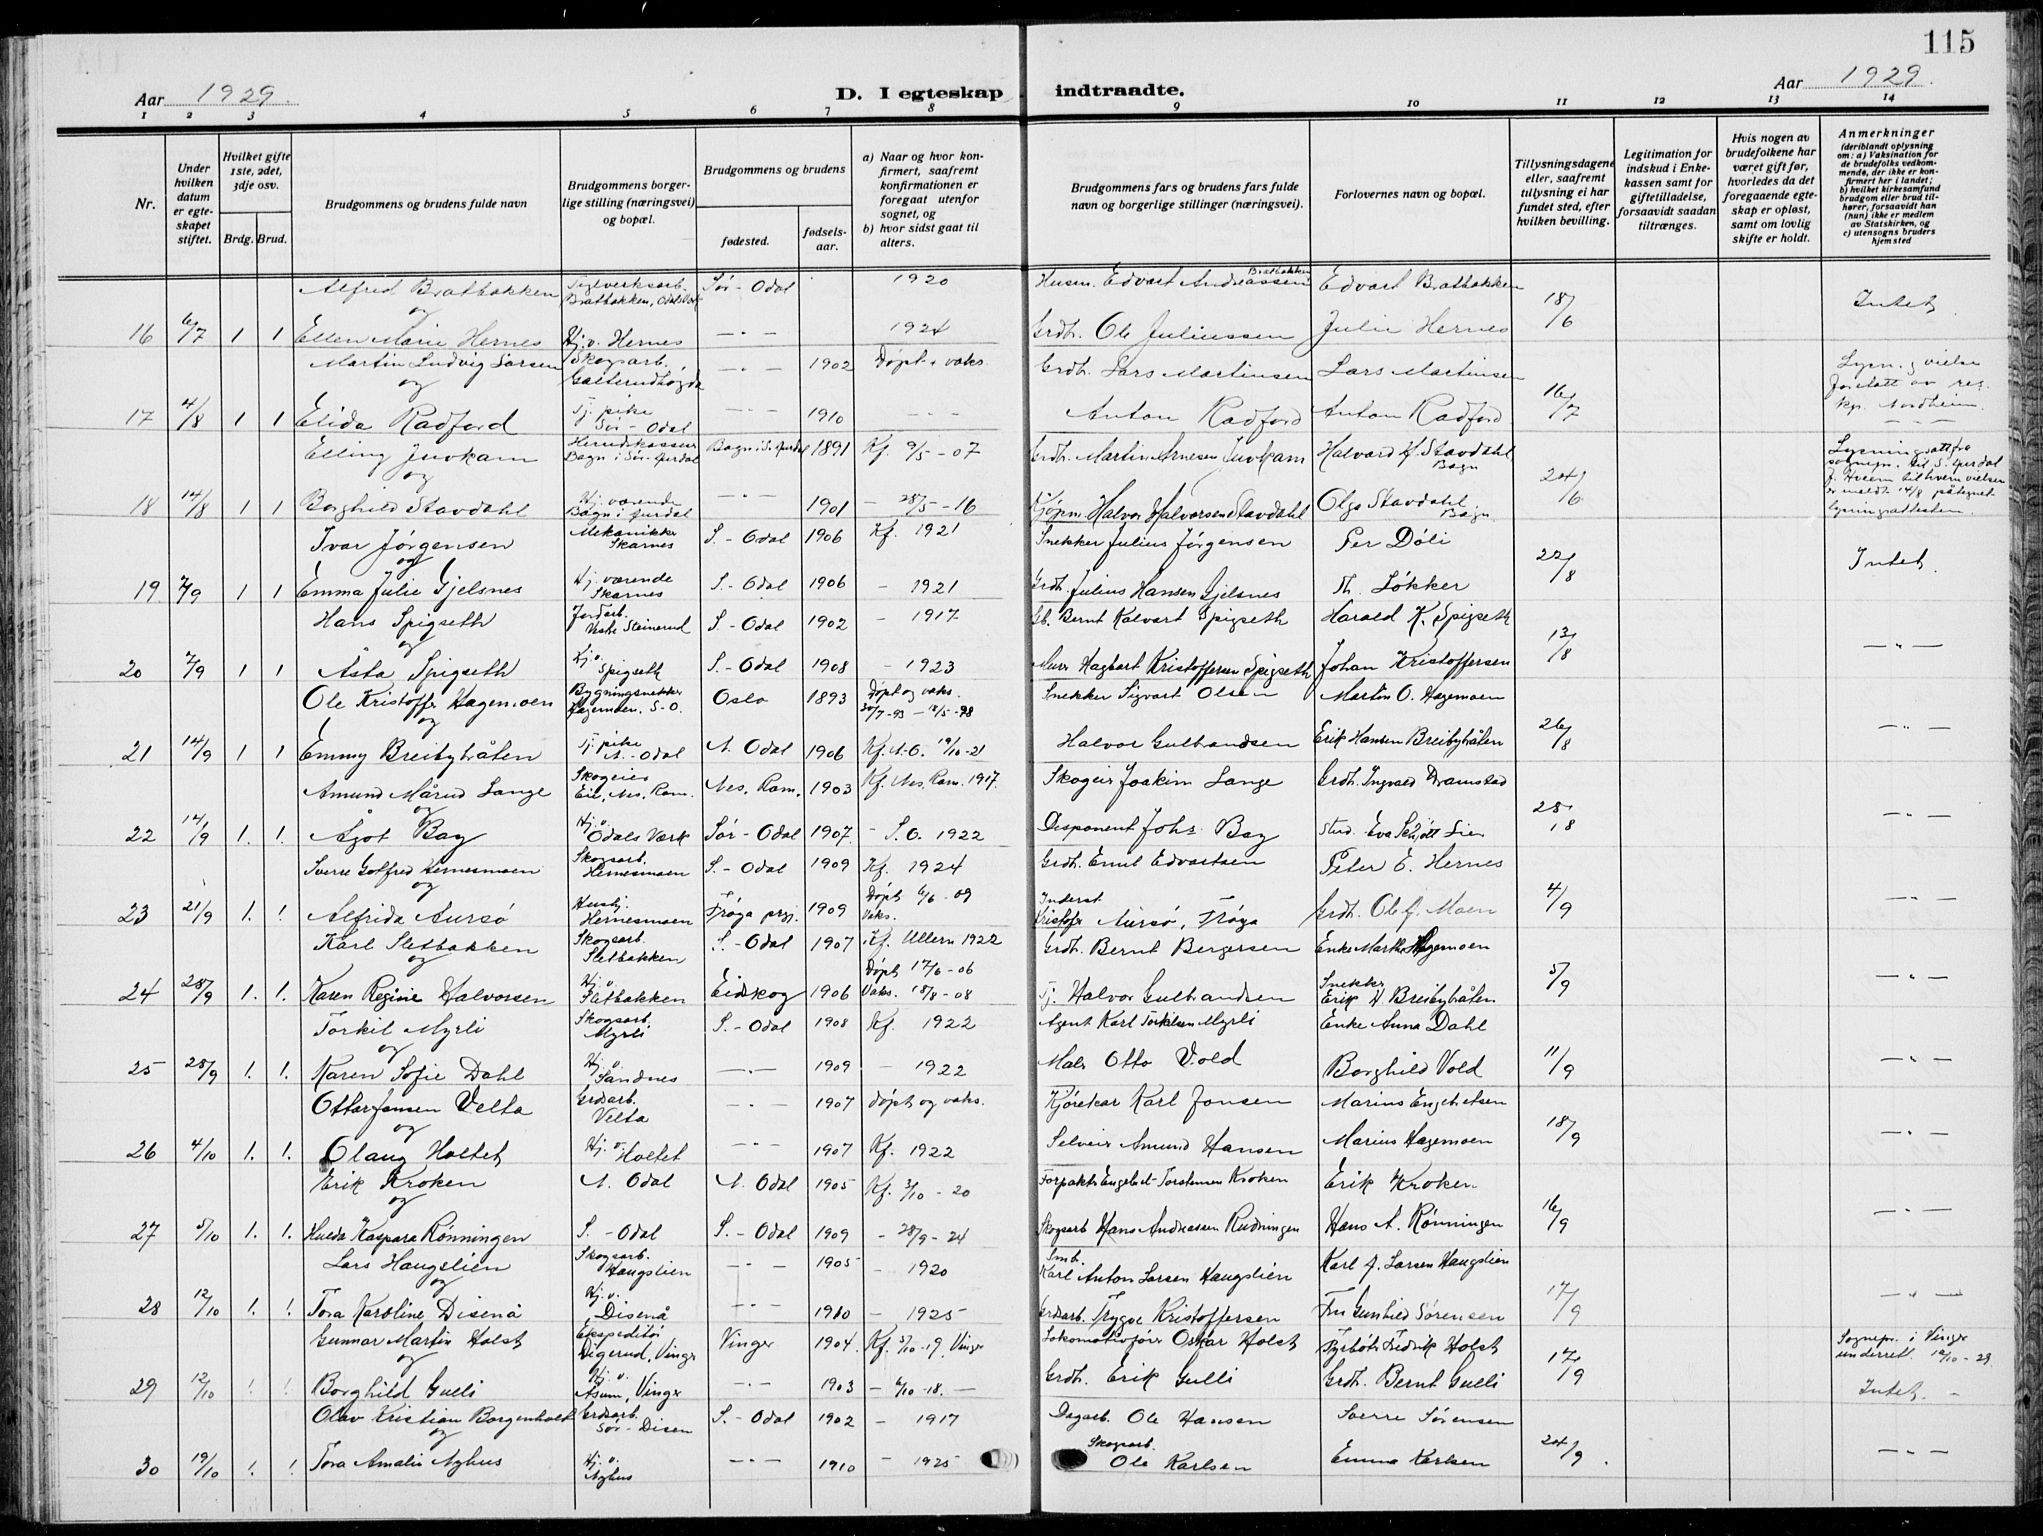 115
Aar 1929. D. I egteskap indtraadte. Aar 1929.
1 2 3 4 5 6 7 8 9 10 11 12 13 14
Nr.
Under hvilken datum er egteskapet stiftet.
Hvilket gifte 1ste, 2det, 3dje osv.
Brdg. Brud.
Brudgommens og brudens fulde navn
Brudgommens borgerlige stilling (næringsvei) og bopæl.
Brudgommens og brudens
fødested.
fødselsaar.
a) Naar og hvor konfirmert, saafremt konfirmationen er foregaat utenfor sognet, og
b) hvor sidst gaat til alters.
Brudgommens fars og brudens fars fulde navn og borgerlige stillinger (næringsvei).
Forlovernes navn og bopæl.
Tillysningsdagene eller, saafremt tillysning ei har fundet sted, efter hvilken bevilling.
Legitimation for indskud i Enkekassen samt for giftetilladelse, forsaavidt saadan tiltrænges.
Hvis nogen av brudefolkene har været gift før, hvorledes da det foregaaende egteskap er opløst, samt om lovlig skifte er holdt.
Anmerkninger (deriblandt oplysning om: a) Vaksination for de brudefolks vedkommende, der ikke er konfirmert her i landet; b) hvilket kirkesamfund brudgom eller brud tilhører, forsaavidt han (hun) ikke er medlem av Statskirken, og c) utensogns bruders hjemsted
Alfred Bratbakken Bratbakken, Odals Verk Sør-Odal 1920 Husm. Edvart Andreassen Bratbakken Edvart Bratbakken
og 18/6 Intet.
16 6/7 1 1 Ellen Marie Hernes Hj. v. Hernes —"— 1924 Grdbr. Ole Juliussen Julie Hernes
Martin Ludvig Larsen Skogsarb. —"— 1902 Døpt + vaks. Grdbr. Lars Martinsen Lars Martinsen
og 16/7
17 4/8 1 1 Elida Radford Tj. pike Sør-Odal —"— 1910 —"— Anton Radford Anton Radford —"—
Elling Juvkam Herredskasserer Bagn i Sør-Aurdal Bagn i S. Aurdal 1891 Kf. 9/5-07 Grdbr. Martin Arnesen Juvkam Halvard H. Stavdahl Bagn
og 24/6
18 14/8 1 1 Borghild Stavdahl Hj. værende Bagn i Aurdal —"— 1901 — 28/5-16 Kjøpm. Halvor Halvorsen Stavdahl Olga Stavdahl Bagn
Ivar Jørgensen Mekaniker Skarnes S.-Odal 1906 Kf. 1921 Snekker Julius Jørgensen Per Døli
og 22/8 Intet.
19 7/9 1 1 Emma Julie Gjelsnes Hj. værende Skarnes S.-Odal 1906 — 1921 Grdbr. Julius Hansen Gjelsnes Th. Løkker
Hans Spigseth Jordarb. Vestre Steinerud S.-Odal 1902 — 1917 Gb. Bernt Kalvart Spigseth Harald K. Spigseth
og 13/8
20 7/9 1 1 Åsta Spigseth Hj. v. Spigseth S.-Odal 1908 — 1923 Murer Hagbart Kristoffersen Spigseth Johan Kristoffersen —"—
Ole Kristoffer Hagemoen Bygningssnekker Hagemoen, S-O. Oslo 1893 Døpt og vaks. Snekker Sigvart Olsen Martin O. Hagemoen
og 26/8 —"—
21 14/9 1 1 Emmy Breibybråten Tj. pike N.-Odal N. Odal 1906 Kf. N.O. 19/10-21 Halvor Gulbrandsen Erik Hansen Breibybråten
Amund Mårud Lange Skogeier Eie, Nes, Rom. Nes, Rom. 1903 Kf. Nes, Rom. 1917. Skogeier Joakim Lange Grdbr. Ingvald Dramstad
og 28/8
22 14/9 1. 1. Ågot Bay Hj. v. Odals Værk Sør-Odal 1907. — S.O. 1922 Disponent Johs. Bay Stud. Eva Schjøtt Lie —"—
Sverre Golfred Hernesmoen Skogsarb. Hernesmoen S.-Odal 1909 Kf. 1924 Grdbr. Emil Edvartsen Peter E. Hernes
og 4/9
23 21/9 1. 1. Alfrida Aursø Husbj. Hernesmoen 1909 Døpt 6/6-09 Vaks. Inderst Kristofer Aursø, Frøya Grdbr. Ole J. Moen —"—
Karl Sletbakken Skogsarb. Sletbakken S.-Odal 1907 Kf. Ullern 1922 Grdbr. Bernt Bergersen Enke Marthe Hagemoen
og 5/9
24 28/9 1. 1. Karen Regine Halvorsen Hj. v. Sletbakken Eidskog 1906 Døpt 17/6-06 Vaks. 18/8-08 Tj. Halvor Gulbrandsen Snekker Erik H. Breibybråten —"—
Torkil Myrli Skogsarb. Myrli S.-Odal 1908 Kf. 1922 Agent Karl Torkilsen Myrli Enke Anna Dahl
og 11/9
25 28/9 1. 1. Karen Sofie Dahl Hj. v. Sandnes —"— 1909 — 1922 Maler Otto Vold Borghild Vold —"—
Ottar Jansen Velta Grdsarb. Velta —"— 1907 Døpt og vaks. Kjørekar Karl Jansen Marius Engebretsen
og 18/9
26 4/10 1. 1. Olaug Holtet Hj. v. Holtet —"— 1907 Kf. 1922 Selveier Amund Hansen Marius Hagemoen —"—
Erik Kroken N. Odal N. Odal 1905 Kf. 3/10-20 Forpakter Engebret Torstensen Kroken Erik Kroken
og 16/9
27 5/10 1. 1. Hulda Kaspara Rønningen S.-Odal S.-Odal 1909 — 28/9-24 Skogsarb. Hans Andreassen Rudningen Hans A. Rønningen —"—
Lars Haugslien Skogsarb. Haugslien —"— 1905 — 1920 Smb. Karl Anton Larsen Haugslien Karl J. Larsen Haugslien
og 17/9
28 12/10 1. 1. Tora Karoline Disenå Hj. v. Disenå —"— 1910 — 1925 Grdsarb. Trygve Kristoffersen Fru Gunhild Sørensen —"—
Gunnar Martin Holst Ekspeditør Digerud, Vinger Vinger 1904 Kf. 5/10-19, Vinger Lokomotivfører Oskar Holst Fyrbøter Fredrik Holst Sognepr. i Vinger underrett. 12/10-29.
og 17/9
29 12/10 1. 1. Borghild Gulli Hj. v. Åsum, Vinger —"— 1903 — 6/10-18. — Grdbr. Erik Gulli Grdbr. Bernt Gulli Intet. —
Olav Kristian Borgenholt Grdsarb. Sør-Disen S.-Odal 1902 — 1917 Dagarb. Ole Hansen Sverre Sørensen
og 24/9
30 19/10 1. 1. Tora Amalie Nyhus Hj. v. Nyhus —"— 1910 — 1925 Skogsarb. Ole Karlsen Emma Karlsen —"—